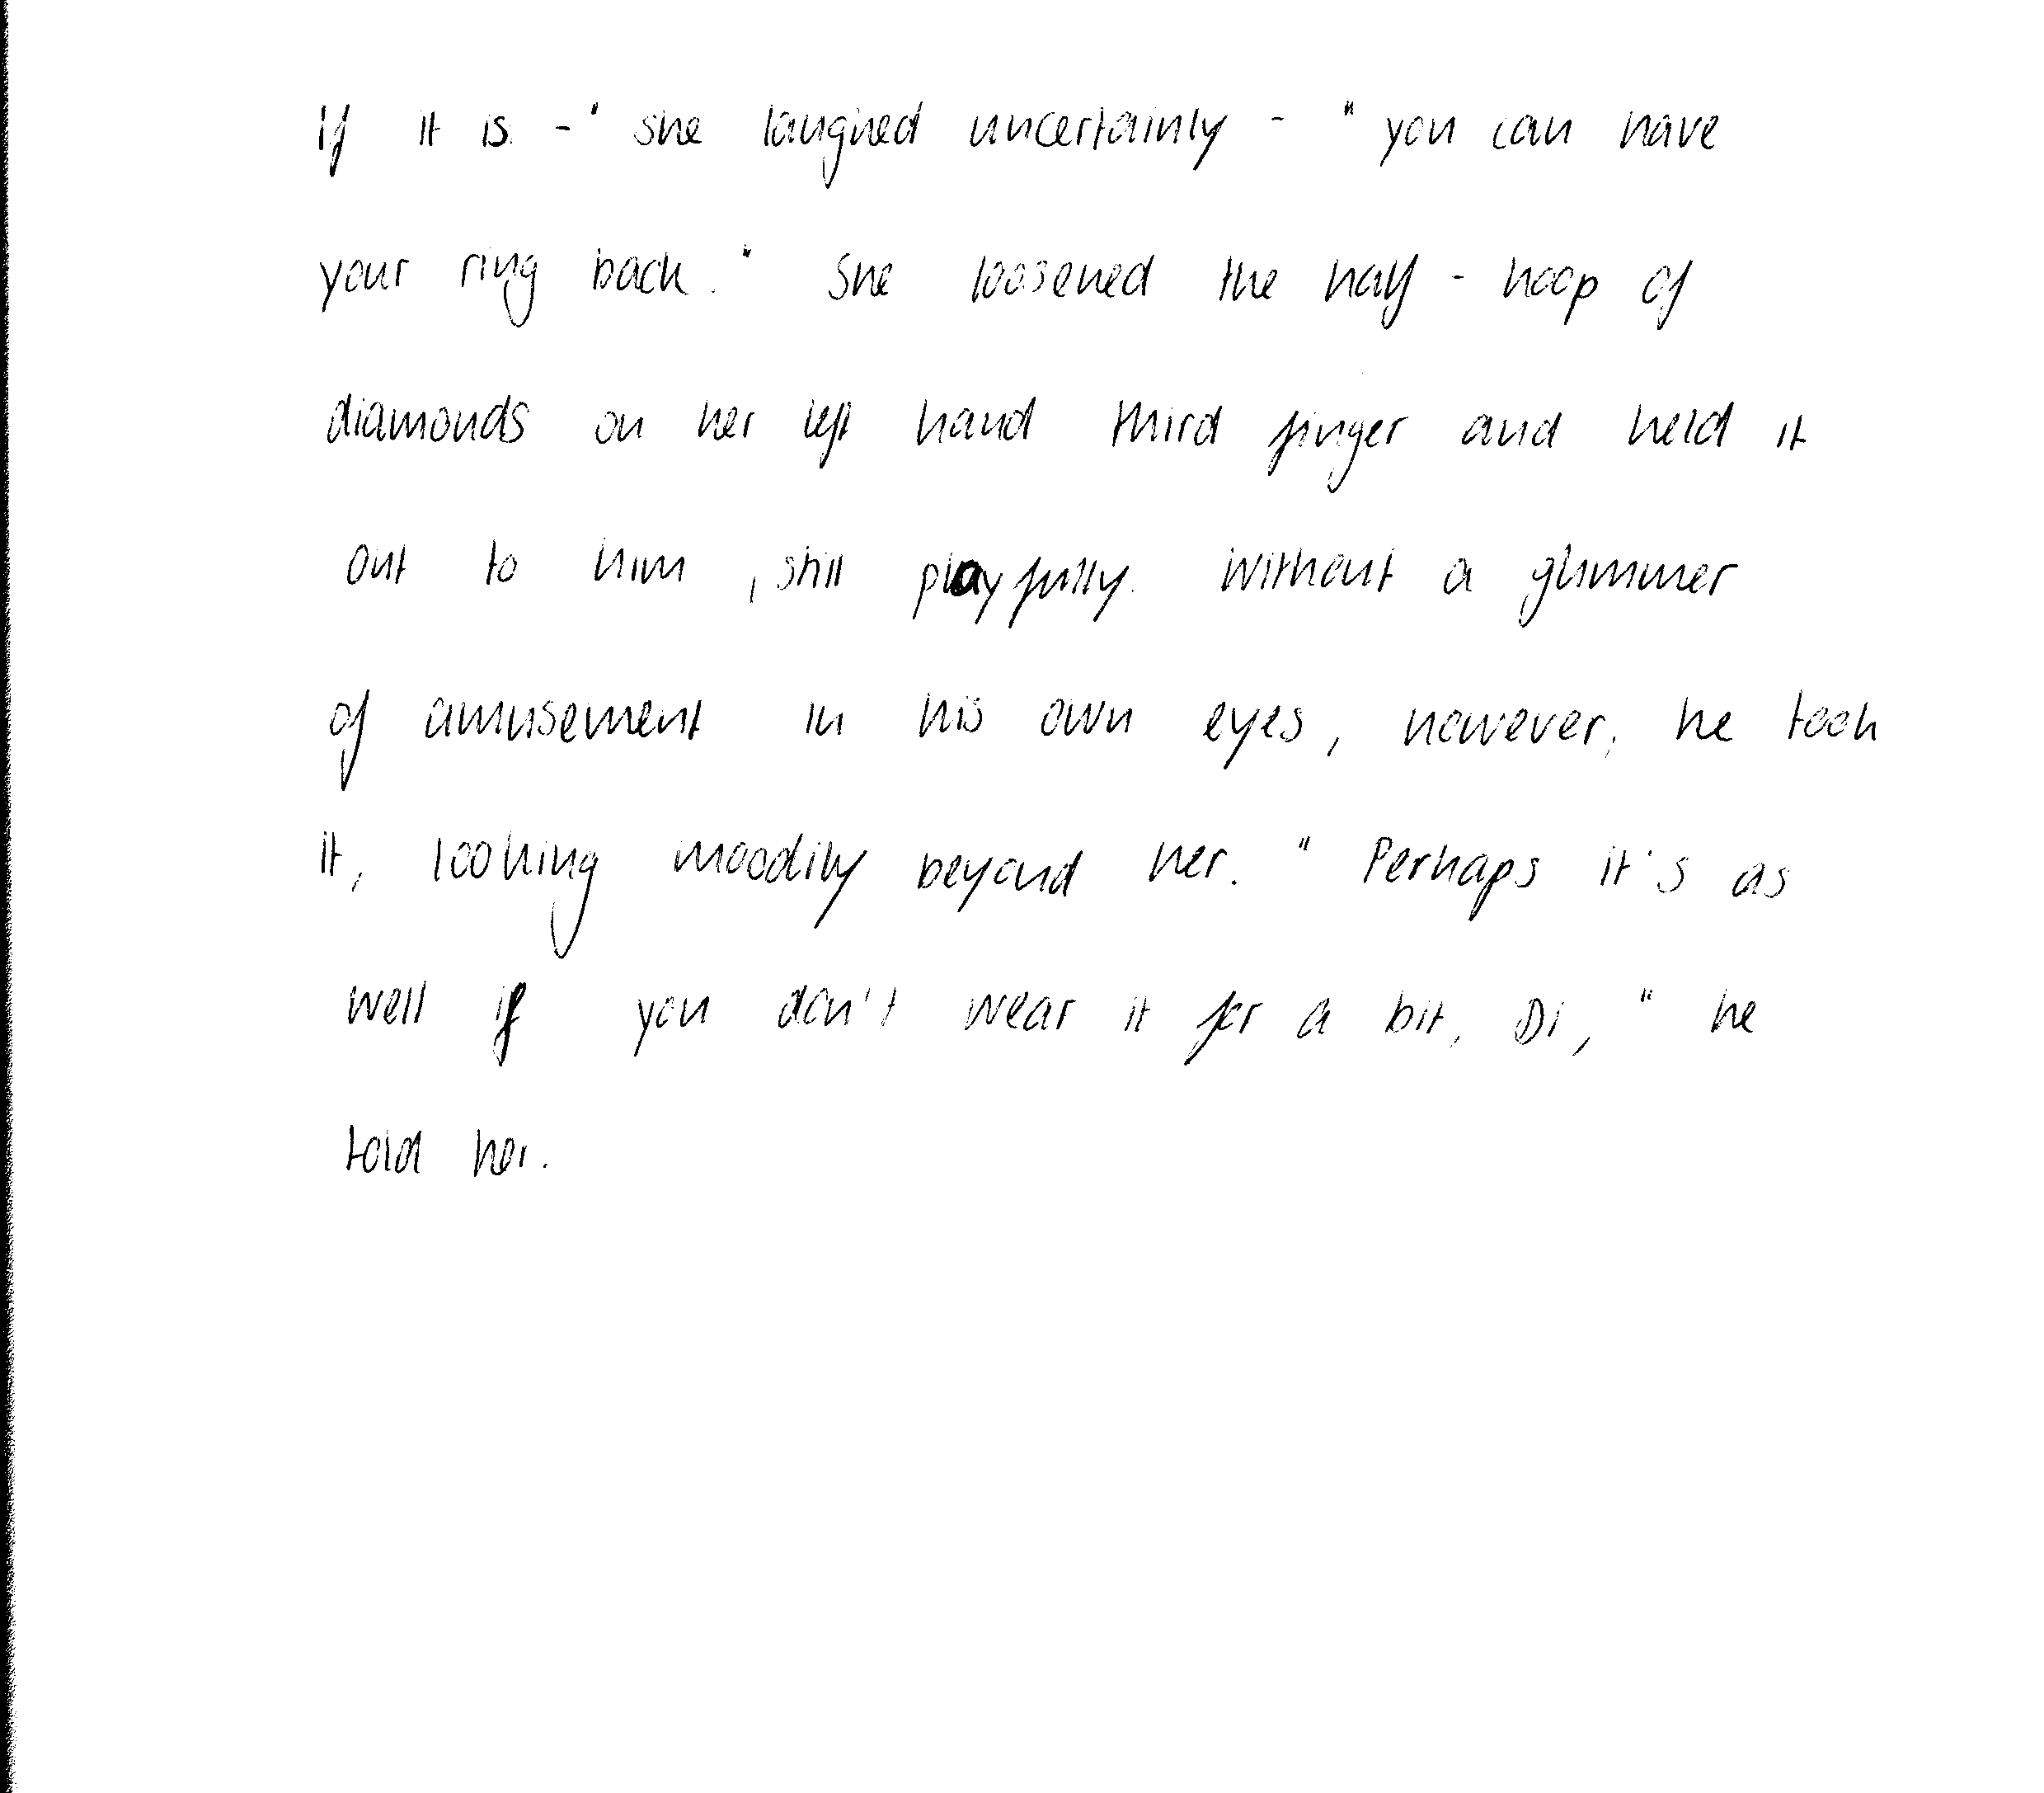 If it is - " she laughed uncertainly - " you can have
your ring back. " She loosened the half - hoop of
diamonds on her left hand third finger and held it
out to him , still playfully. Without a glimmer
of amusement in his own eyes, however, he took
it, looking moodily beyond her. " Perhaps it's as
well if you don't wear it for a bit, Di, " he
told her.